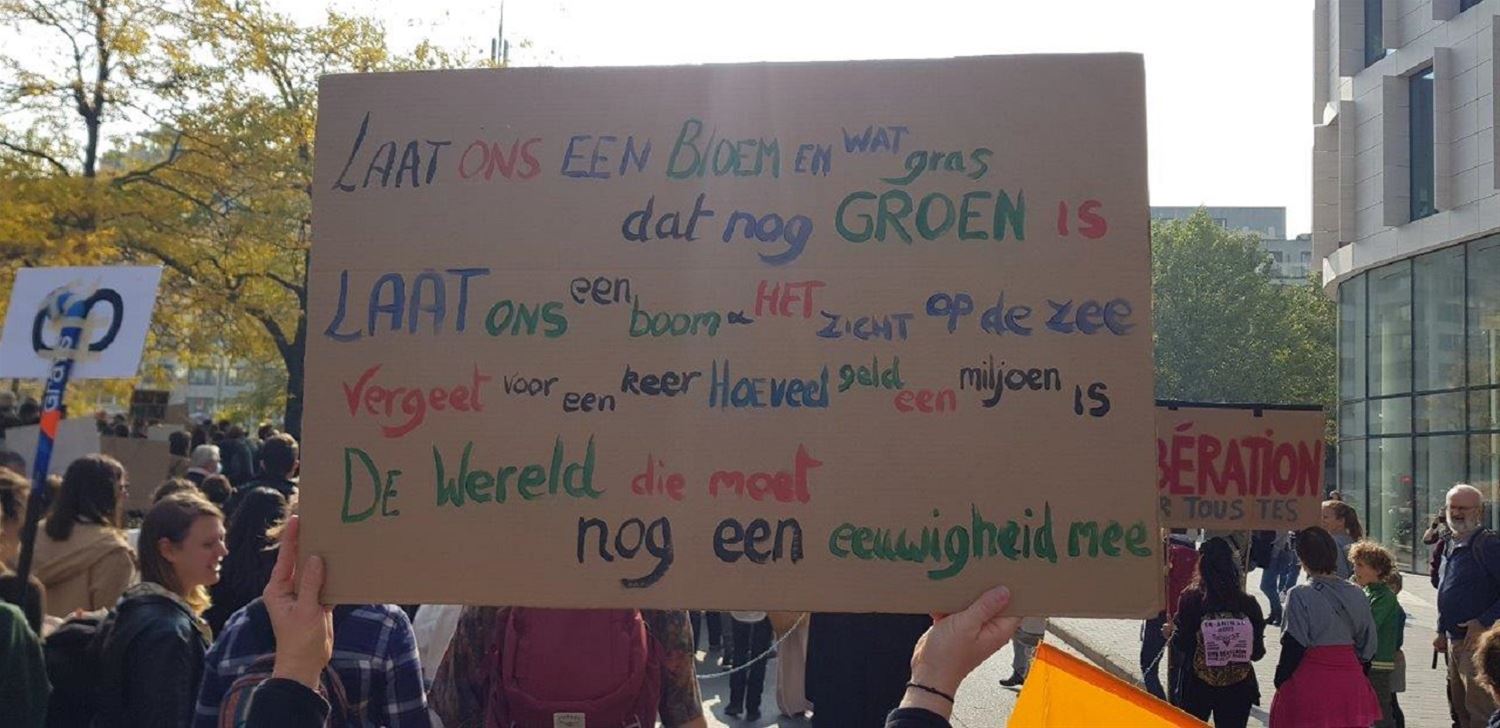 LAAT ONS EEN BLOEM EN WAT gras
dat nog GROEN IS
LAAT ONS een boom & HET ZICHT op de zee
Vergeet voor een keer HOEVEEL geld een miljoen IS
DE WERELD die moet
nog een eeuwigheid mee
BÉRATION
R TOUS TES